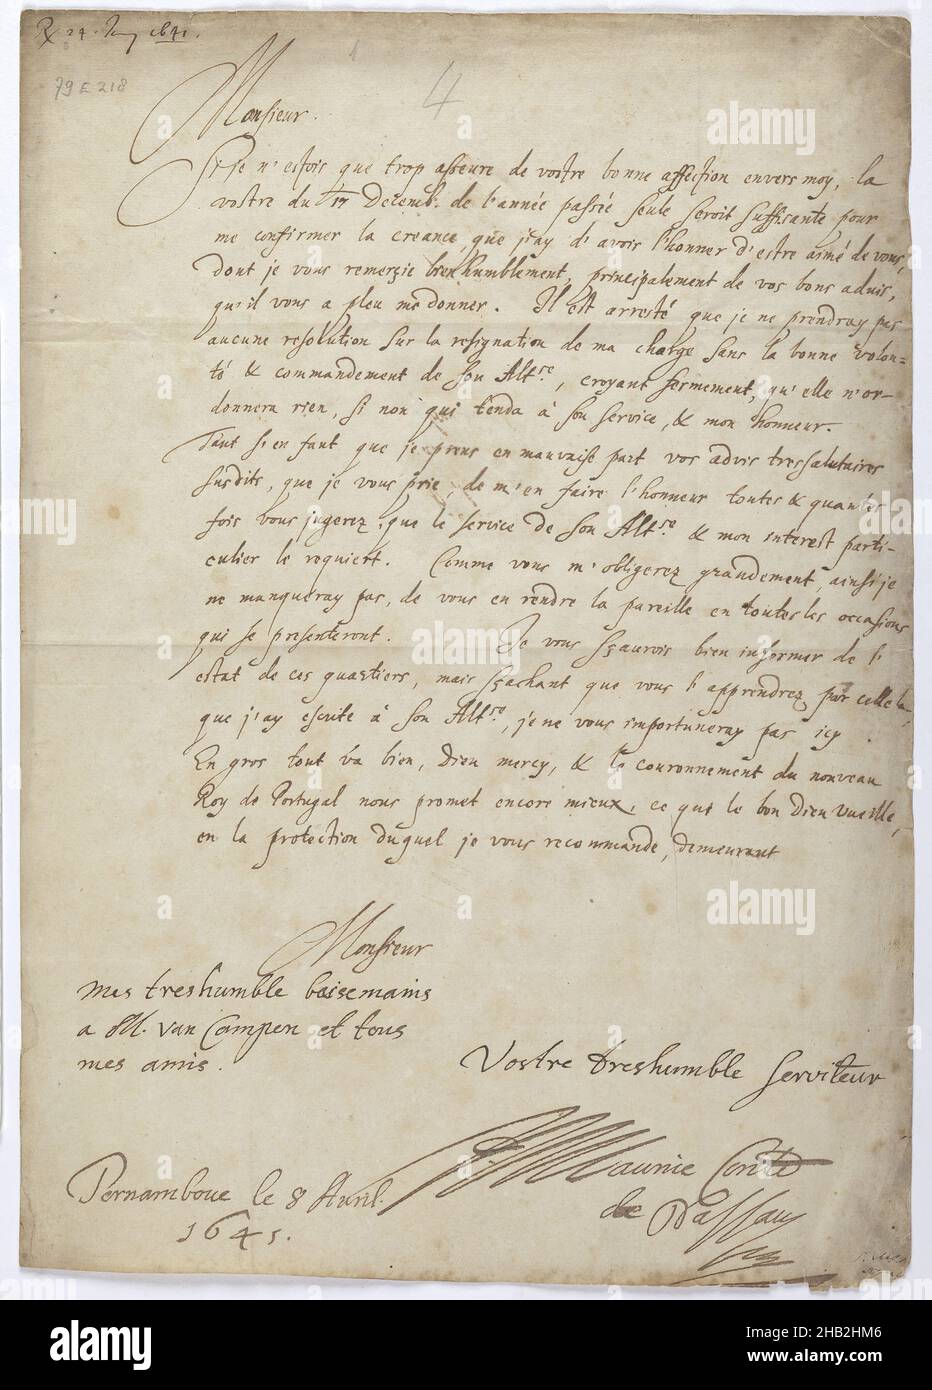 R 24. Juny 1641.
79 E 218
4
Monsieur.
Si je n'estois que trop asseuré de vostre bonne affection envers moy, la
vostre du 17 Decemb. de l'année passée seule seroit suffisante pour
me confirmer la creance, que j'ay d'avoir l'honner d'estre aimé de vous,
dont je vous remerzie bien humblement, principalement de vos bons advis,
qu'il vous a pleu me donner. Il est arresté que je ne prendray pas
aucune resolution sur la resignation de ma charge sans la bonne volon-
té & commandement de son Altse, croyant fermement, qu'elle n'or-
donnera rien, si non qui tenda à son service, & mon honneur.
Tant s'en faut que je prens en mauvaise part vos advis tressalutaires
susdits, que je vous prie, de m'en faire l'honneur toutes & quantes
fois vous jugerez, que le service de son Altse & mon interest parti-
culier le requiert. Comme vous m'obligerez grandement, ainsi je
ne manqueray pas, de vous en rendre la pareille en toutes les occasions
qui se presenteront. Je vous sçaurois bien informer de l'
estat de ces quartiers, mais sçachant que vous l'apprendrez par celle la,
que j'ay escrite à son Altse, je ne vous importuneray pas icy
En gros tout va bien, Dieu mercy, & le couronnement du nouveau
Roy de Portugal nous promet encore mieux, ce que le bon Dieu vueille,
en la protection duquel je vous recommande, demeurant
Monsieur
mes treshumble baisemains
a M. van Campen et tous
mes amis.
Vostre treshumble serviteur
Maurice Conte
de Nassau
Pernambouc le 8 Avril.
1641.
alamy
a
alamy
Image ID: 2HB2HM6
www.alamy.com